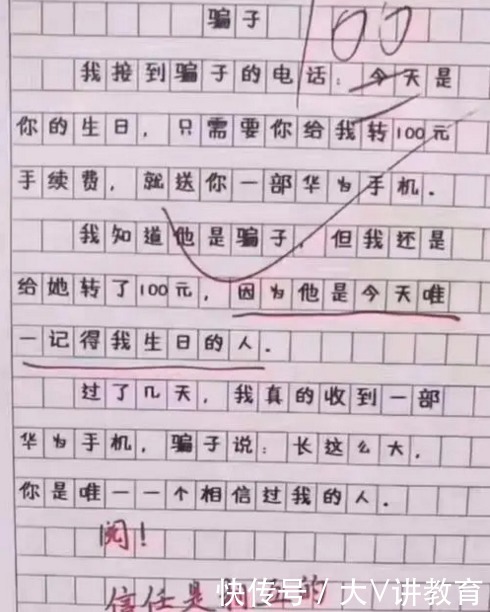 骗子
100
我接到骗子的电话：今天是
你的生日，只需要你给我转100元
手续费，就送你一部华为手机.
我知道他是骗子，但我还是
给她转了100元，因为他是今天唯
一记得我生日的人.
过了几天，我真的收到一部
华为手机，骗子说：长这么大，
你是唯一一个相信过我的人.
阅！
信任是
的
快传号/大V讲教育